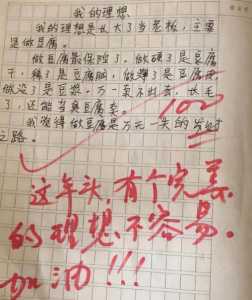 我的理想
我的理想是长大了当老板，主要
是做豆腐。
做豆腐最保险了。做硬了是豆腐
干，稀了是豆腐脑，做薄了是豆腐皮，
做没了是豆浆。万一卖不出去，长毛
了，还能当臭豆腐卖。
我觉得做豆腐是万无一失的发财
之路。
100
这年头，有个完美
的理想不容易。
加油!!!